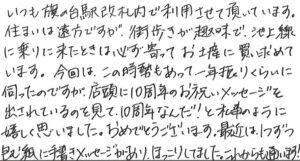 いつも旗の台駅改札内で利用させて頂いています。
住まいは遠方ですが、街歩きが趣味で、池上線
に乗りに来たときは必ず寄ってお土産に買い求めて
います。今回は、この時勢もあって一年振りくらいに
伺ったのですが店頭に10周年のお祝いメッセージを
出されているのを見て、10周年なんだ!と私事のように
嬉しく思いました。おめでとうございます。最近は、1つずつ
包み紙に手書きメッセージがあり、ほっこりしてました。これからも通います!